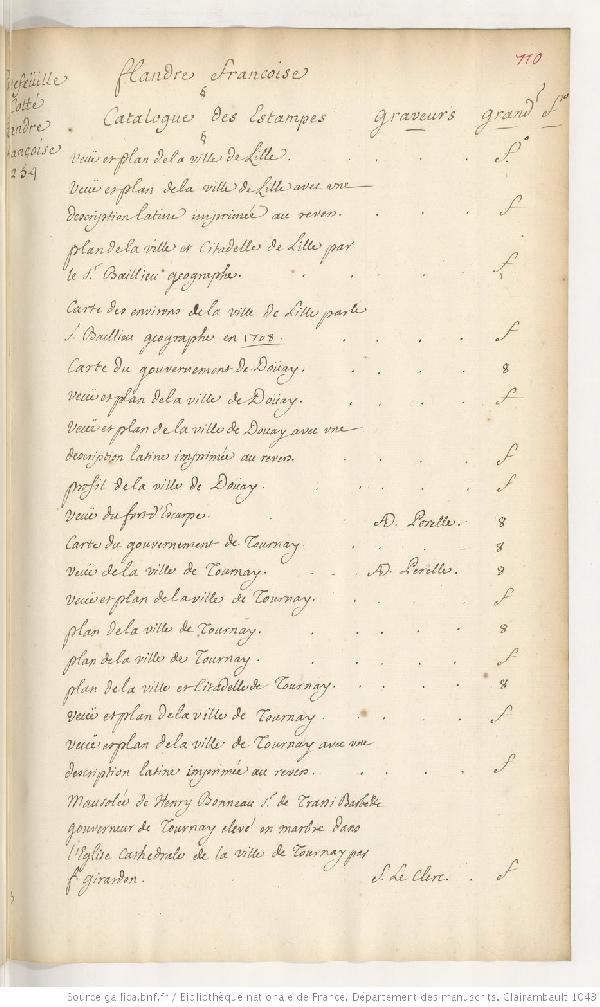 110
flandre francoise
§
Catalogue des Estampes graveurs grandr fro
§
cotté
254
veüe et plan de la ville de Lille. . . . fo.
veüe et plan de la ville de Lille avec vne
description latine imprimée au revers. . . . f
plan de la ville et Citadelle de Lille par
le Sr. Baillieu geographe. . . . f
Carte des environs de la ville de Lille par le
S. Baillieu geographe en 1708. . . . f
Carte du gouvernement de Doüay. . . . 8
veüe et plan de la ville de Doüay. . . . f
veüe et plan de la ville de Douay avec vne
description latine imprimée au revers. . . . f
profil de la ville de Doüay. . . . f
veüe du fort d'Escarpe. AD. Perelle. 8
Carte du gouvernement de Tournay. . . . 8
veüe de la ville de Tournay. AD. Perelle. 8
veüe et plan de la ville de Tournay. . . . f
plan de la ville de Tournay. . . . 8
plan de la ville de Tournay. . . . f
plan de la ville et Citadelle de Tournay. . . . 8
veüe et plan de la ville de Tournay. . . . f
veüe et plan de la ville de Tournay avec vne
description latine imprimée au revers. . . . f
Mausolée de Henry Bonneau Sr. de Trani
gouverneur de Tournay elevé en marbre dans
l'Eglise Cathedrale de la ville de Tournay par
fr. girardon. S. Le Clerc. f
Source gallica.bnf.fr / Bibliothèque nationale de France. Département des manuscrits. Clairambault 1043